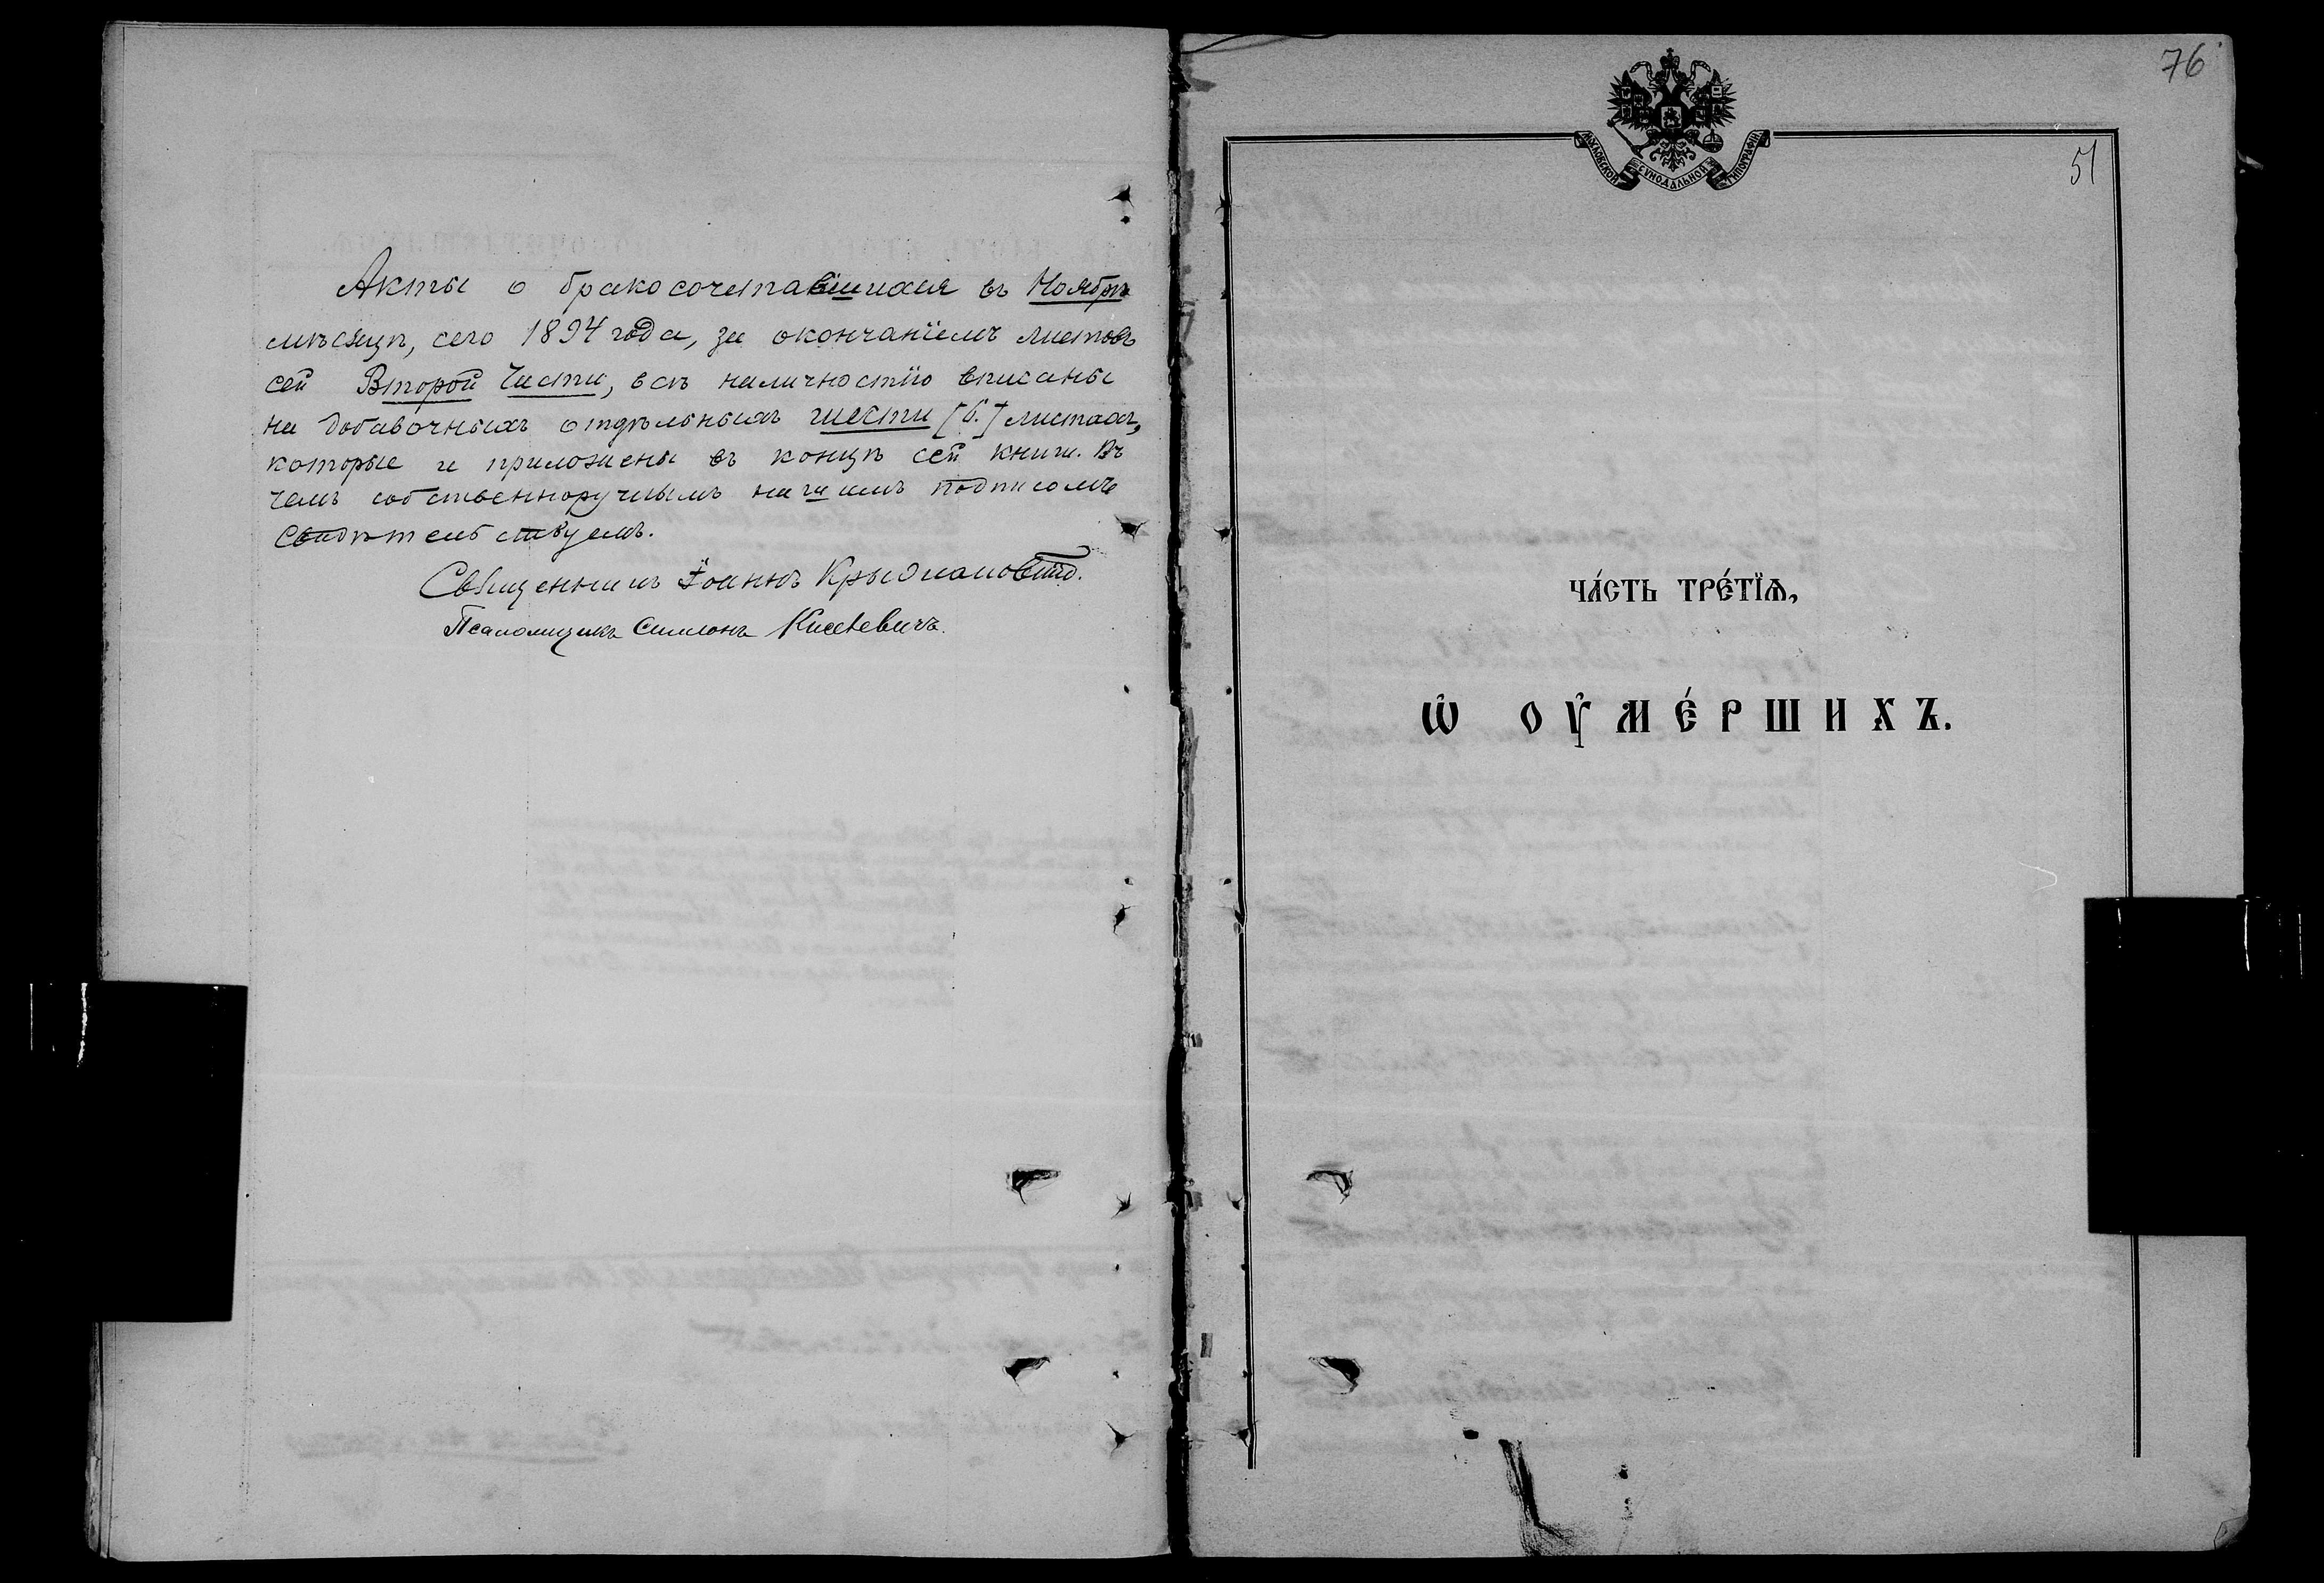 Акты о бракосочетавшихся въ Ноябрѣ
мѣсяцѣ, сего 1894 года, за окончаніемъ листовъ
сей Второй Части, всѣ наличностію вписаны
на добавочныхъ отдѣльныхъ шести [6.] листахъ,
которые и приложены въ концѣ сей книги. Въ
чемъ собственноручнымъ нашимъ подписомъ
свидѣтельствуемъ.
Священникъ Іоаннъ Крыжановскій.
Псаломщикъ Симеонъ
76
51
МОСКОВСКОЙ СѴНОДАЛЬНОЙ ТИПОГРАФІИ
ЧА́СТЬ ТРЕ́ТЇѦ,
Ѡ҆ ОУ҆МЕ́РШИХЪ.